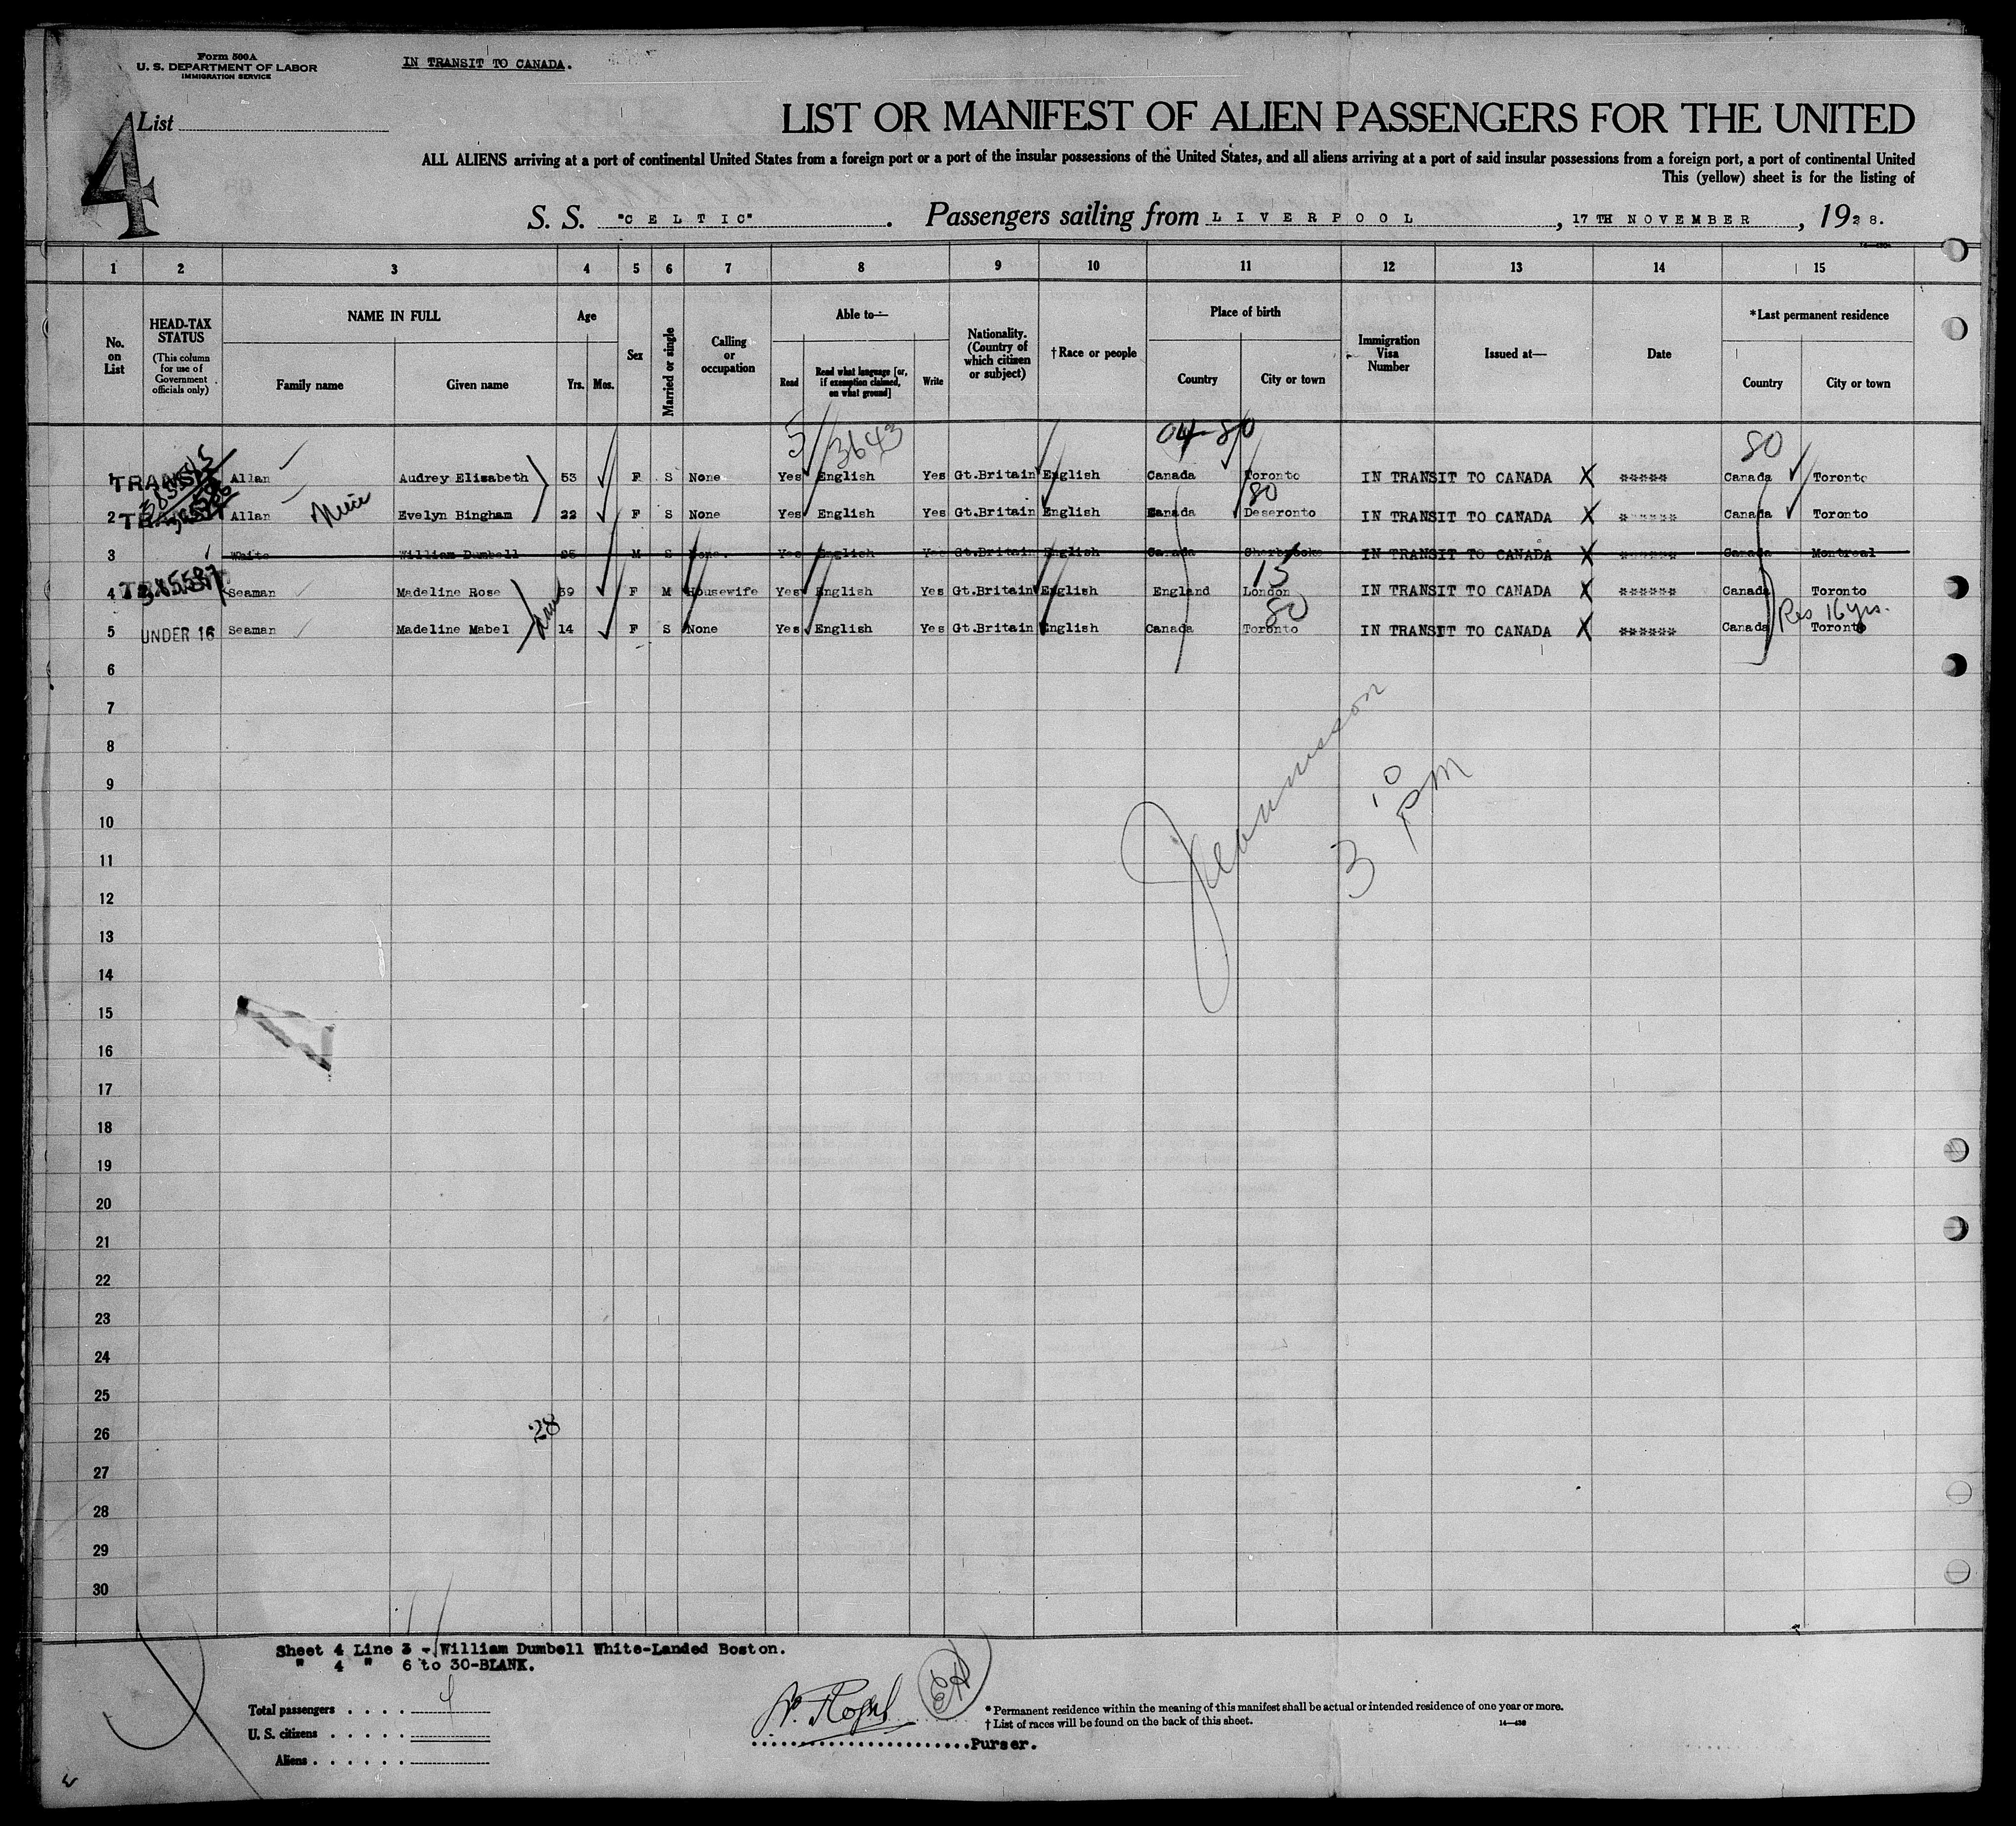 Form 500A
U. S. DEPARTMENT OF LABOR
IMMIGRATION SERVICE
IN TRANSIT TO CANADA.
4
List
LIST OR MANIFEST OF ALIEN PASSENGERS FOR THE UNITED
ALL ALIENS arriving at a port of continental United States from a foreign port or a port of the insular possessions of the United States, and all aliens arriving at a port of said insular possessions from a foreign port, a port of continental United
This (yellow) sheet is for the listing of
S. S. "CELTIC". Passengers sailing from LIVERPOOL, 17TH NOVEMBER, 1928.
1 2 3 4 5 6 7 8 9 10 11 12 13 14 15
No. on List
HEAD-TAX STATUS (This column for use of Government officials only)
NAME IN FULL
Family name
Given name
Age
Yrs. Mos.
Sex
Married or single
Calling or occupation
Able to—
Read
Read what language [or, if exemption claimed, on what ground]
Write
Nationality. (Country of which citizen or subject)
†Race or people
Place of birth
Country
City or town
Immigration Visa Number
Issued at—
Date
*Last permanent residence
Country
City or town
5 3643 04-80 80
1 TRANSIT Allan Audrey Elisabeth 53 F S None Yes English Yes Gt.Britain English Canada Toronto IN TRANSIT TO CANADA X ***** Canada Toronto
80
2 Allan Niece Evelyn Bingham 22 F S None Yes English Yes Gt.Britain English Canada Deseronto IN TRANSIT TO CANADA X ****** Canada Toronto
3 White William Dumbell 25 M S None. Yes English Yes Gt.Britain English Canada Sherbrooke IN TRANSIT TO CANADA X ****** Canada Montreal
15
4 385587 Seaman Madeline Rose 39 F M Housewife Yes English Yes Gt.Britain English England London IN TRANSIT TO CANADA X ****** Canada Toronto
80 Res 16 yrs.
5 UNDER 16 Seaman Madeline Mabel 14 F S None Yes English Yes Gt.Britain English Canada Toronto IN TRANSIT TO CANADA X ****** Canada Toronto
6
7
8
9
3 10 pm
10
11
12
13
14
15
16
17
18
19
20
21
22
23
24
25
26
28
27
28
29
30
Sheet 4 Line 3 - William Dumbell White-Landed Boston.
" 4 " 6 to 30-BLANK.
Total passengers . . . . 4
U. S. citizens . . . . .
Aliens . . . . . .
EH
Purser.
* Permanent residence within the meaning of this manifest shall be actual or intended residence of one year or more.
† List of races will be found on the back of this sheet.
14—430